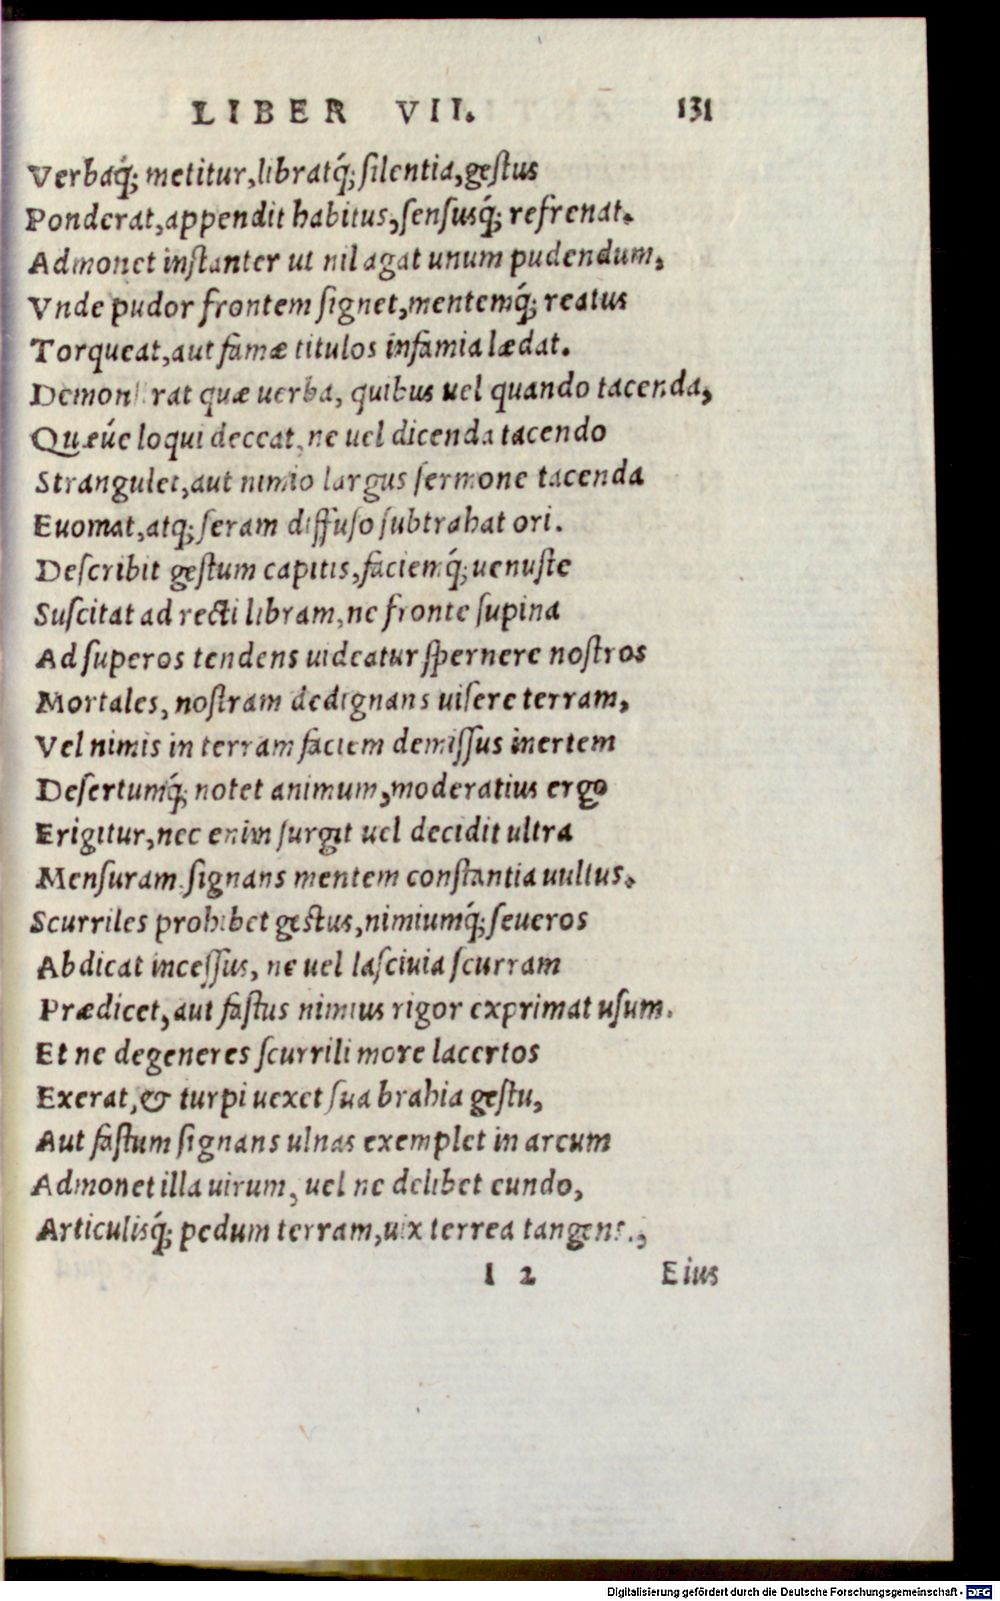 LIBER VII. 131
Verbaq́; metitur, libratq́; ſilentia, geſtus
Ponderat, appendit habitus, ſenſusq́; refrenat.
Admonet inſtanter ut nil agat unum pudendum,
Vnde pudor frontem ſignet, mentemq́; reatus
Torqueat, aut famæ titulos infamia lædat.
Demonſtrat quæ uerba, quibus uel quando tacenda,
Quæúe loqui deceat, ne uel dicenda tacendo
Strangulet, aut nimio largus ſermone tacenda
Euomat, atq; ſeram diffuſo ſubtrahat ori.
Deſcribit geſtum capitis, faciemq́; uenuſte
Suſcitat ad recti libram, ne fronte ſupina
Ad ſuperos tendens uideatur ſpernere noſtros
Mortales, noſtram dedignans uiſere terram,
Vel nimis in terram faciem demiſſus inertem
Deſertumq́; notet animum, moderatius ergo
Erigitur, nec enim ſurgit uel decidit ultra
Menſuram ſignans mentem conſtantia uultus.
Scurriles prohibet geſtus, nimiumq́; ſeueros
Abdicat inceſſus, ne uel laſciuia ſcurram
Prædicet, aut faſtus nimius rigor exprimat uſum.
Et ne degeneres ſcurrili more lacertos
Exerat, & turpi uexet ſua brahia geſtu,
Aut faſtum ſignans ulnas exemplet in arcum
Admonet illa uirum, uel ne delibet eundo,
Articulisq́; pedum terram, uix terrea tangens.,
I 2 Eius
Digitalisierung gefördert durch die Deutsche Forschungsgemeinschaft - DFG